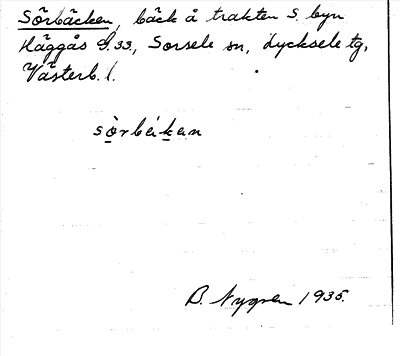 Sörbäcken, bäck å trakten S. byn
Häggås S.33., Sorsele sn, Lycksele tg,
Västerb. l.
sörbäkan
B. Nygren 1935.